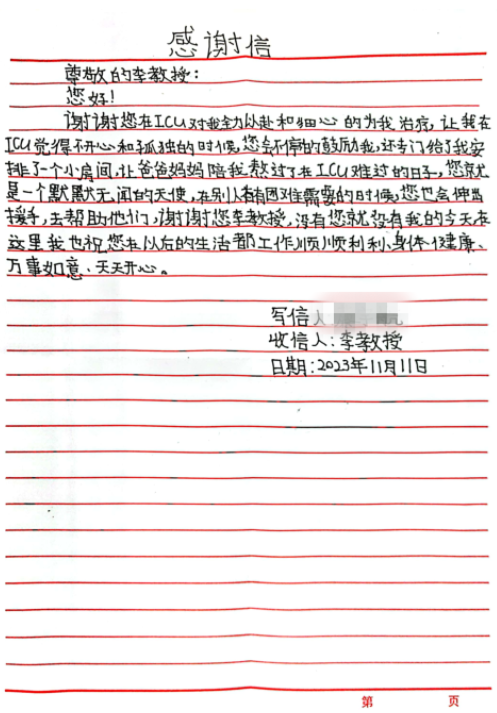 感谢信
尊敬的李教授：
您好！
谢谢您在ICU对我全力以赴和细心的为我治疗，让我在
ICU觉得不开心和孤独的时候，您会不停的鼓励我，还专门给了我安
排了一个小房间，让爸爸妈妈陪我熬过了在ICU难过的日子，您就
是一个默默无闻的天使，在别人有困难需要的时候，您也会伸出
援手，去帮助他们，谢谢您李教授，没有您就没有我的今天，在
这里我也祝您在以后的生活都工作顺顺利利、身体健康、
万事如意、天天开心。
写信人
收信人：李教授
日期：2023年11月11日
第 页